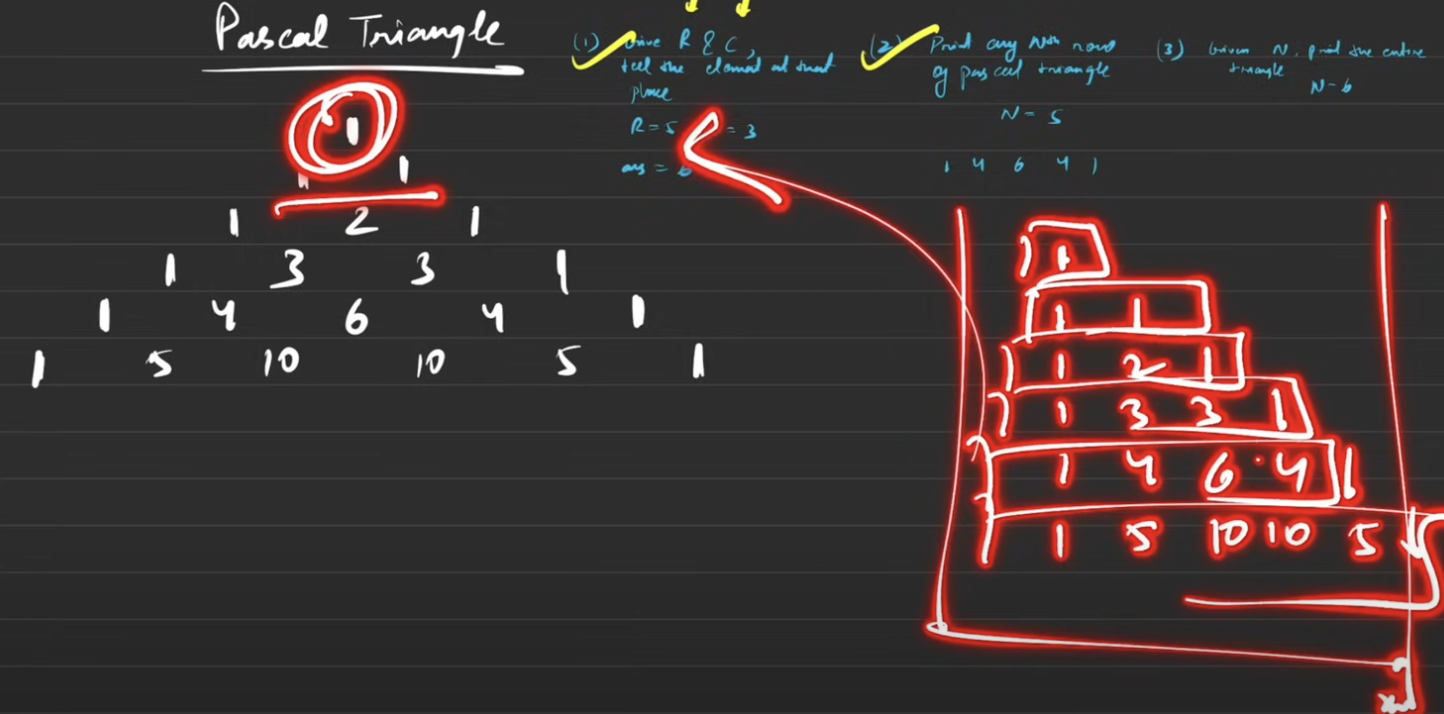 Pascal Triangle
1
1 1
1 2 1
1 3 3 1
1 4 6 4 1
1 5 10 10 5 1
(1) Give R & C,
tell the element at that
place
R = 5 = 3
ans = 6
(2) Print any Nth row
of pascal triangle
N = 5
1 4 6 4 1
(3) Given N, print the entire
triangle
N = 6
1
1 1
1 2 1
1 3 3 1
1 4 6 4 1
1 5 10 10 5